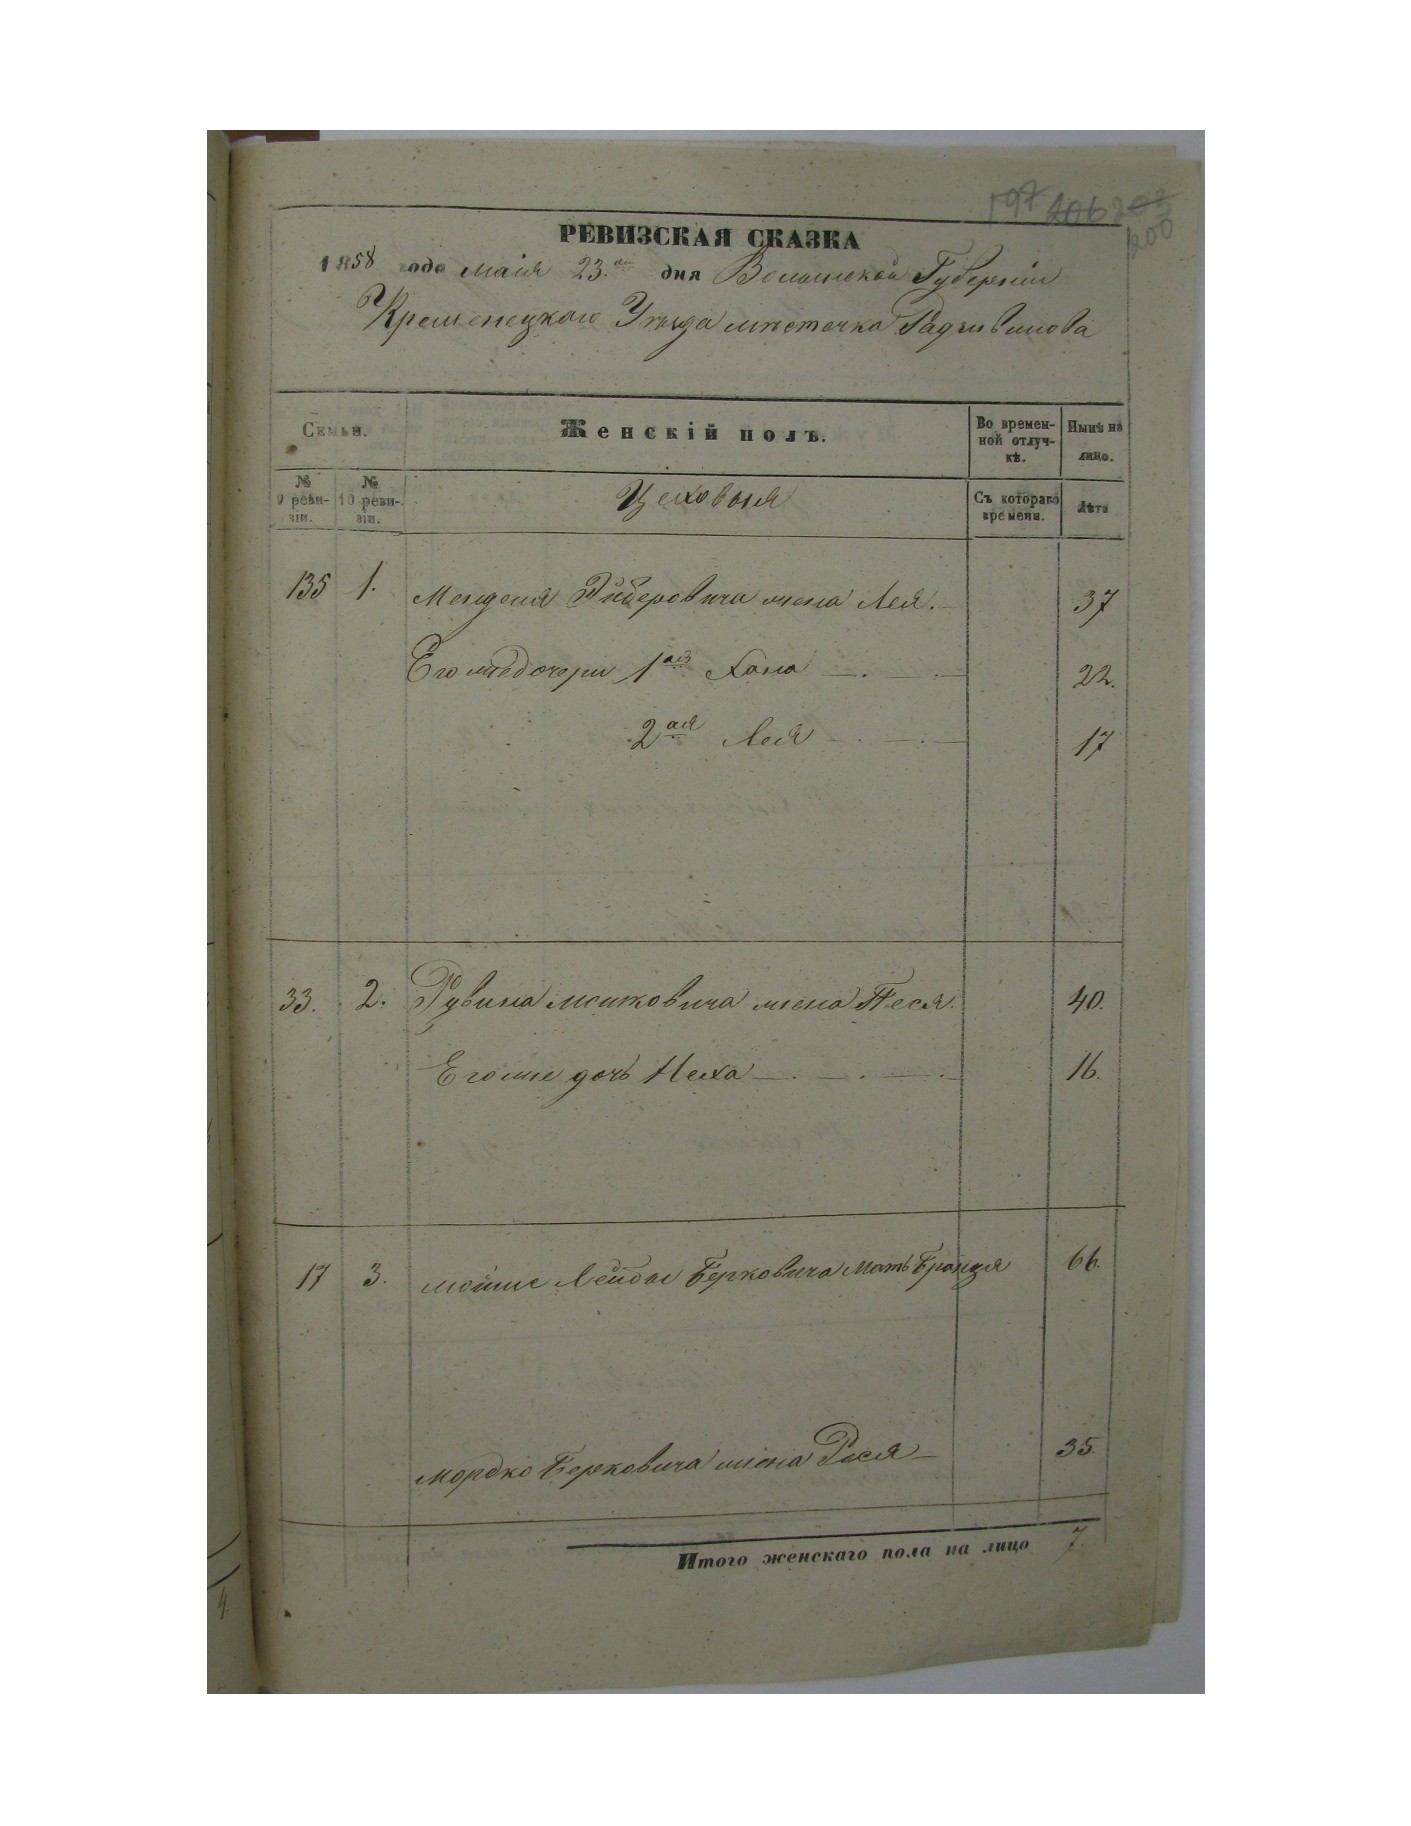 197 206 203
200
РЕВИЗСКАЯ СКАЗКА
1858 года маія 23.го дня Волынской Губерніи
Кременецкаго Уѣзда мѣстечка Радзивилова
Семьи.
Женскій полъ.
Во времен-
ной отлуч-
кѣ.
Нынѣ на
лицо.
№
9 реви-
зіи.
№
10 реви-
зіи.
Цеховыя
Съ котораго
времени.
Лѣта
135 1. Менделя жена Лея. 37
Его же дочери 1ая Хана 22.
2ая Лея 17
33. 2. Рувина Мошковича жена Песя. 40.
Его же дочь Неха 16.
17 3. Мошис Лейбы Берковича мать Брандя 66.
Мордко Берковича жена Рися 35.
Итого женскаго пола на лицо 7.
4